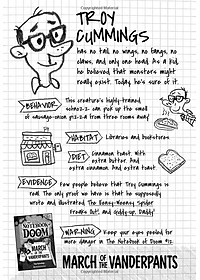 TROY
CUMMINGS
has no tail, no wings, no fangs, no
claws, and only one head. As a kid,
he believed that monsters might
really exist. Today, he's sure of it.
BEHAVIOR
This creature's highly-trained
schnozz can pick up the smell
of sausage-onion pizza from three rooms away!
HABITAT
Libraries and bookstores
DIET
Cinnamon toast. With
extra butter. And
extra cinnamon. And extra toast.
EVIDENCE
Few people believe that Troy Cummings is
real. The only proof we have is that he supposedly
wrote and illustrated The Eensy-Weensy Spider
Freaks Out! and Giddy-up, Daddy!
WARNING
Keep your eyes peeled for
more danger in The Notebook of Doom #12:
MARCH OF THE VANDERPANTS
THE
NOTEBOOK
OF DOOM
MARCH
OF THE
VANDERPANTS